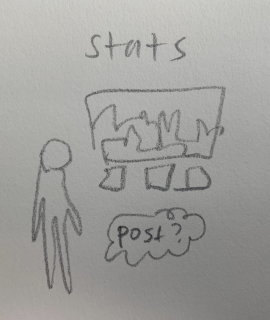 stats
post?